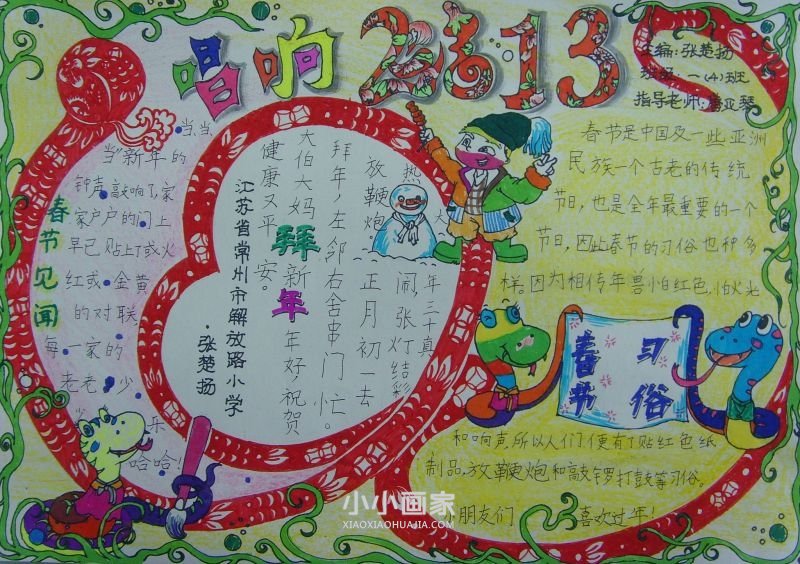 唱响2013
主编:张楚扬
班级:一(4)班
指导老师:曹亚琴
春节见闻
当当
当"新年的
钟声敲响了,家
家户户的门上
早已贴上了或火
红或金黄
的对联,
每一家的
老老少
少
乐
哈哈!
拜新年
年三十真
热
闹,张灯结彩
放鞭炮
正月初一去
拜年,左邻右舍串门忙。
大伯大妈
年好,祝贺
健康又平安。
江苏省常州市解放路小学
·张楚扬
春节是中国及一些亚洲
民族一个古老的传统
节日,也是全年最重要的一个
节日,因此春节的习俗也种多
样。因为相传年兽怕红色,怕火光
春节
习俗
和响声,所以人们便有了贴红色纸
制品,放鞭炮和敲锣打鼓等习俗。
朋友们
喜欢过年!
小小画家
XIAOXIAOHUAJIA.COM